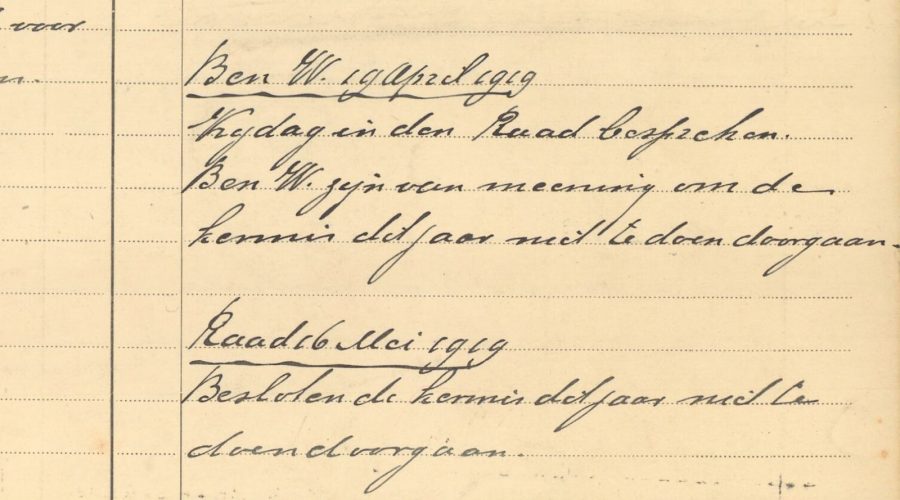 voor
n.
B en W. 19 April 1919
Vrijdag in den Raad bespreken.
B en W. zijn van meening om de
kermis dit jaar niet te doen doorgaan.
Raad 16 Mei 1919
Besloten de kermis dit jaar niet te
doen doorgaan.